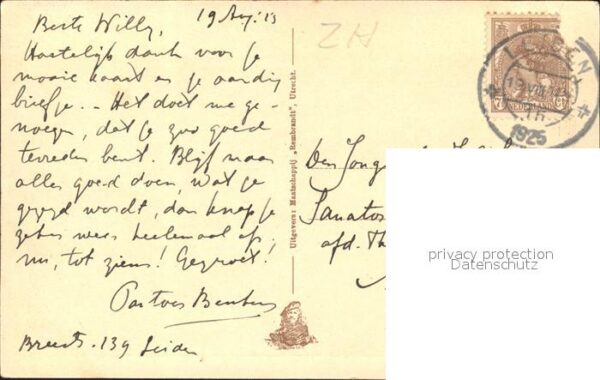 Beste Willy,
Hartelijk dank voor je
mooie kaart en je aardig
briefje. - Het doet me ge-
noegen, dat je zoo goed
tevreden bent. Blijf maar
alles goed doen, wat je
gezegd wordt, dan knap je
zeker weer heelemaal op,
nu, tot ziens! Gegroet!
Breestr. 139 Leiden
Uitgevers: Maatschappij „Rembrandt", Utrecht.
ZH
LEIDEN
1925
NEDERLAND
Den Jonge
Sanato
afd. Th
privacy protection
Datenschutz